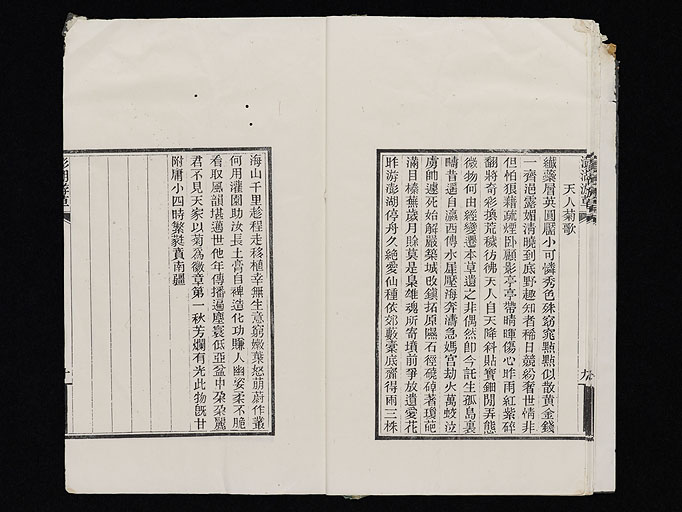 天人菊歌
纖蘂層英圓靨小可憐秀色殊窈窕點點似散黃金錢
一齊浥露媚清曉到底野趣知者稀日競紛奢世情非
但怕狼藉疏煙臥顧影亭亭帶晴暉傷心昨雨紅紫碎
翻將奇彩填荒穢彷彿天人自天降斜貼寶鈿閒弄態
微物何由經變遷本草遺之非偶然卽今託生孤島裏
疇昔遥自瀛西傳水星壓海奔濤急媽宮劫火萬蛟泣
虜帥遽死始解嚴築城改鎭拓原隰石徑磽确著瓊葩
滿目榛蕪歲月賖莫是梟雄魂所寄墳前爭放遺愛花
昨游澎湖停舟久絕愛仙種依郊藪橐底齎得雨三株
海山千里趁程走移植幸無生意窮嫩葉怒萠蔚作叢
何用灌園助汝長土膏自裨造化功賺人幽姿柔不脆
看取風韻堪邁世他年傳播遍塵寰低亞盆中朶朶麗
君不見天家以菊為徽章第一秋芳爛有光此物旣甘
附庸小四時繁蕤賁南疆
澎湖游草
九